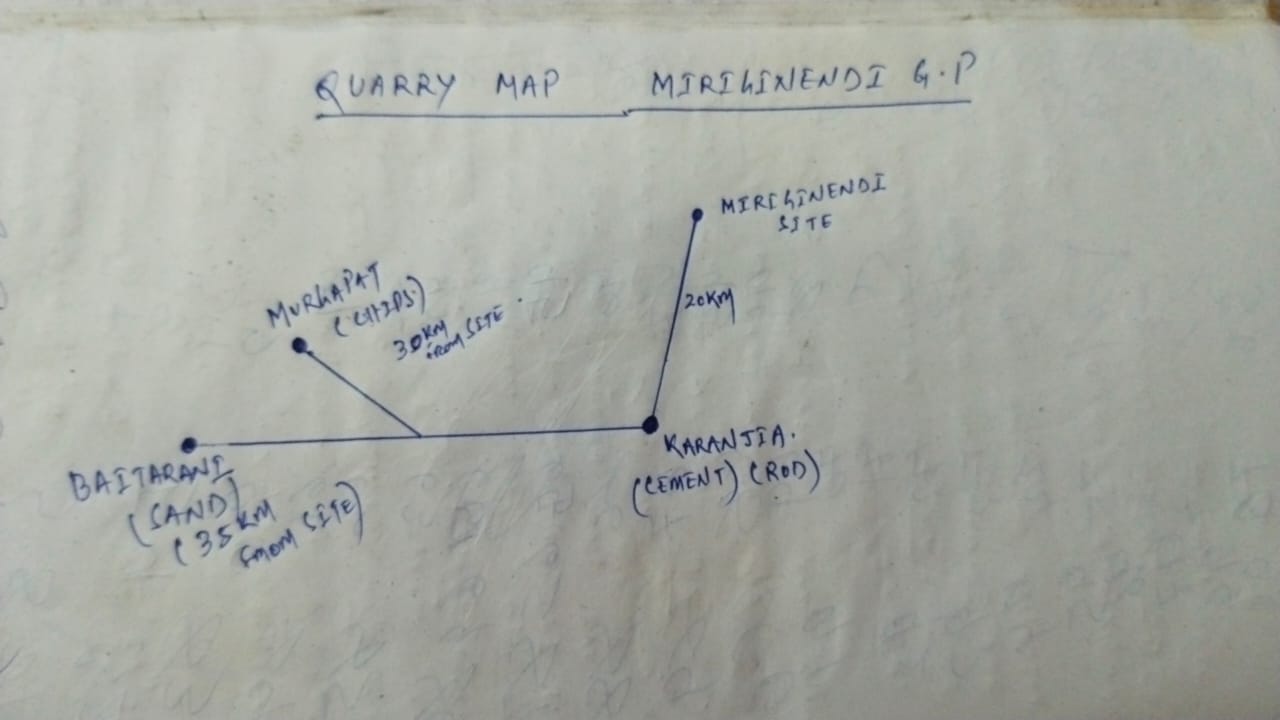 QUARRY MAP MIRIGINENDI G.P
MIRIGINENDI
SITE
MURGAPAT
(CHIPS.)
30KM
from SITE
20KM
BAITARANI
(SAND)
(35KM
from SITE)
KARANJIA.
(CEMENT) (ROD)